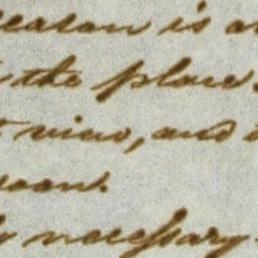 season is a
the place.
view, and
soon.
necessary